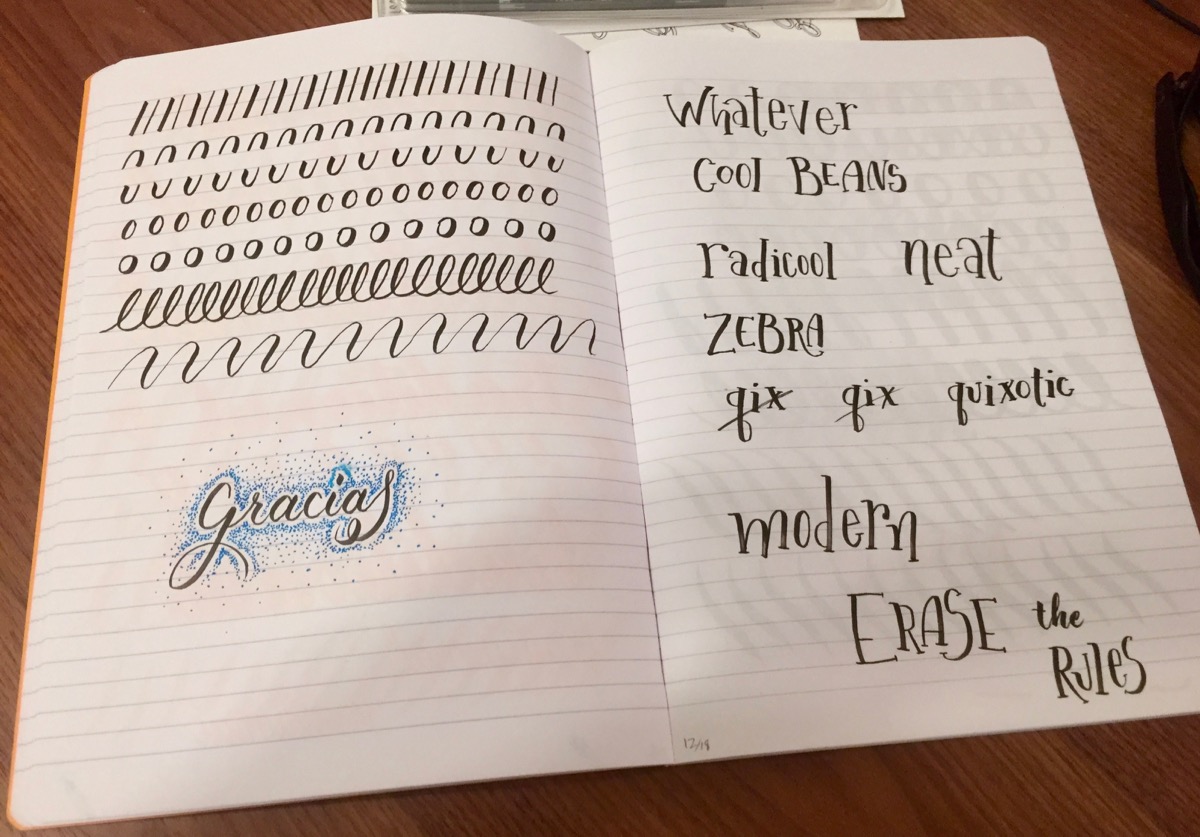 Gracias
Whatever
Cool BEANS
radicool neat
ZEBRA
qix qix quixotic
modern
ERASE the
RULES
12/19